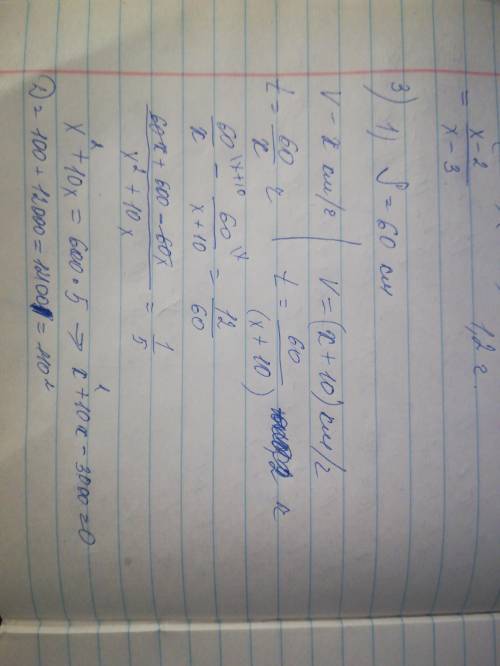 = (x-2)/(x-3)
1,2 г.
3) 1) S = 60 км
V - x км/г | V = (x+10) км/г
t = 60/x г | t = 60/(x+10)
60/x - 60/(x+10) = 12/60
(60x + 600 - 60x)/(x² + 10x) = 1/5
x² + 10x = 600 · 5 → x² + 10x - 3000 = 0
D = 100 + 12000 = 12100 = 110²